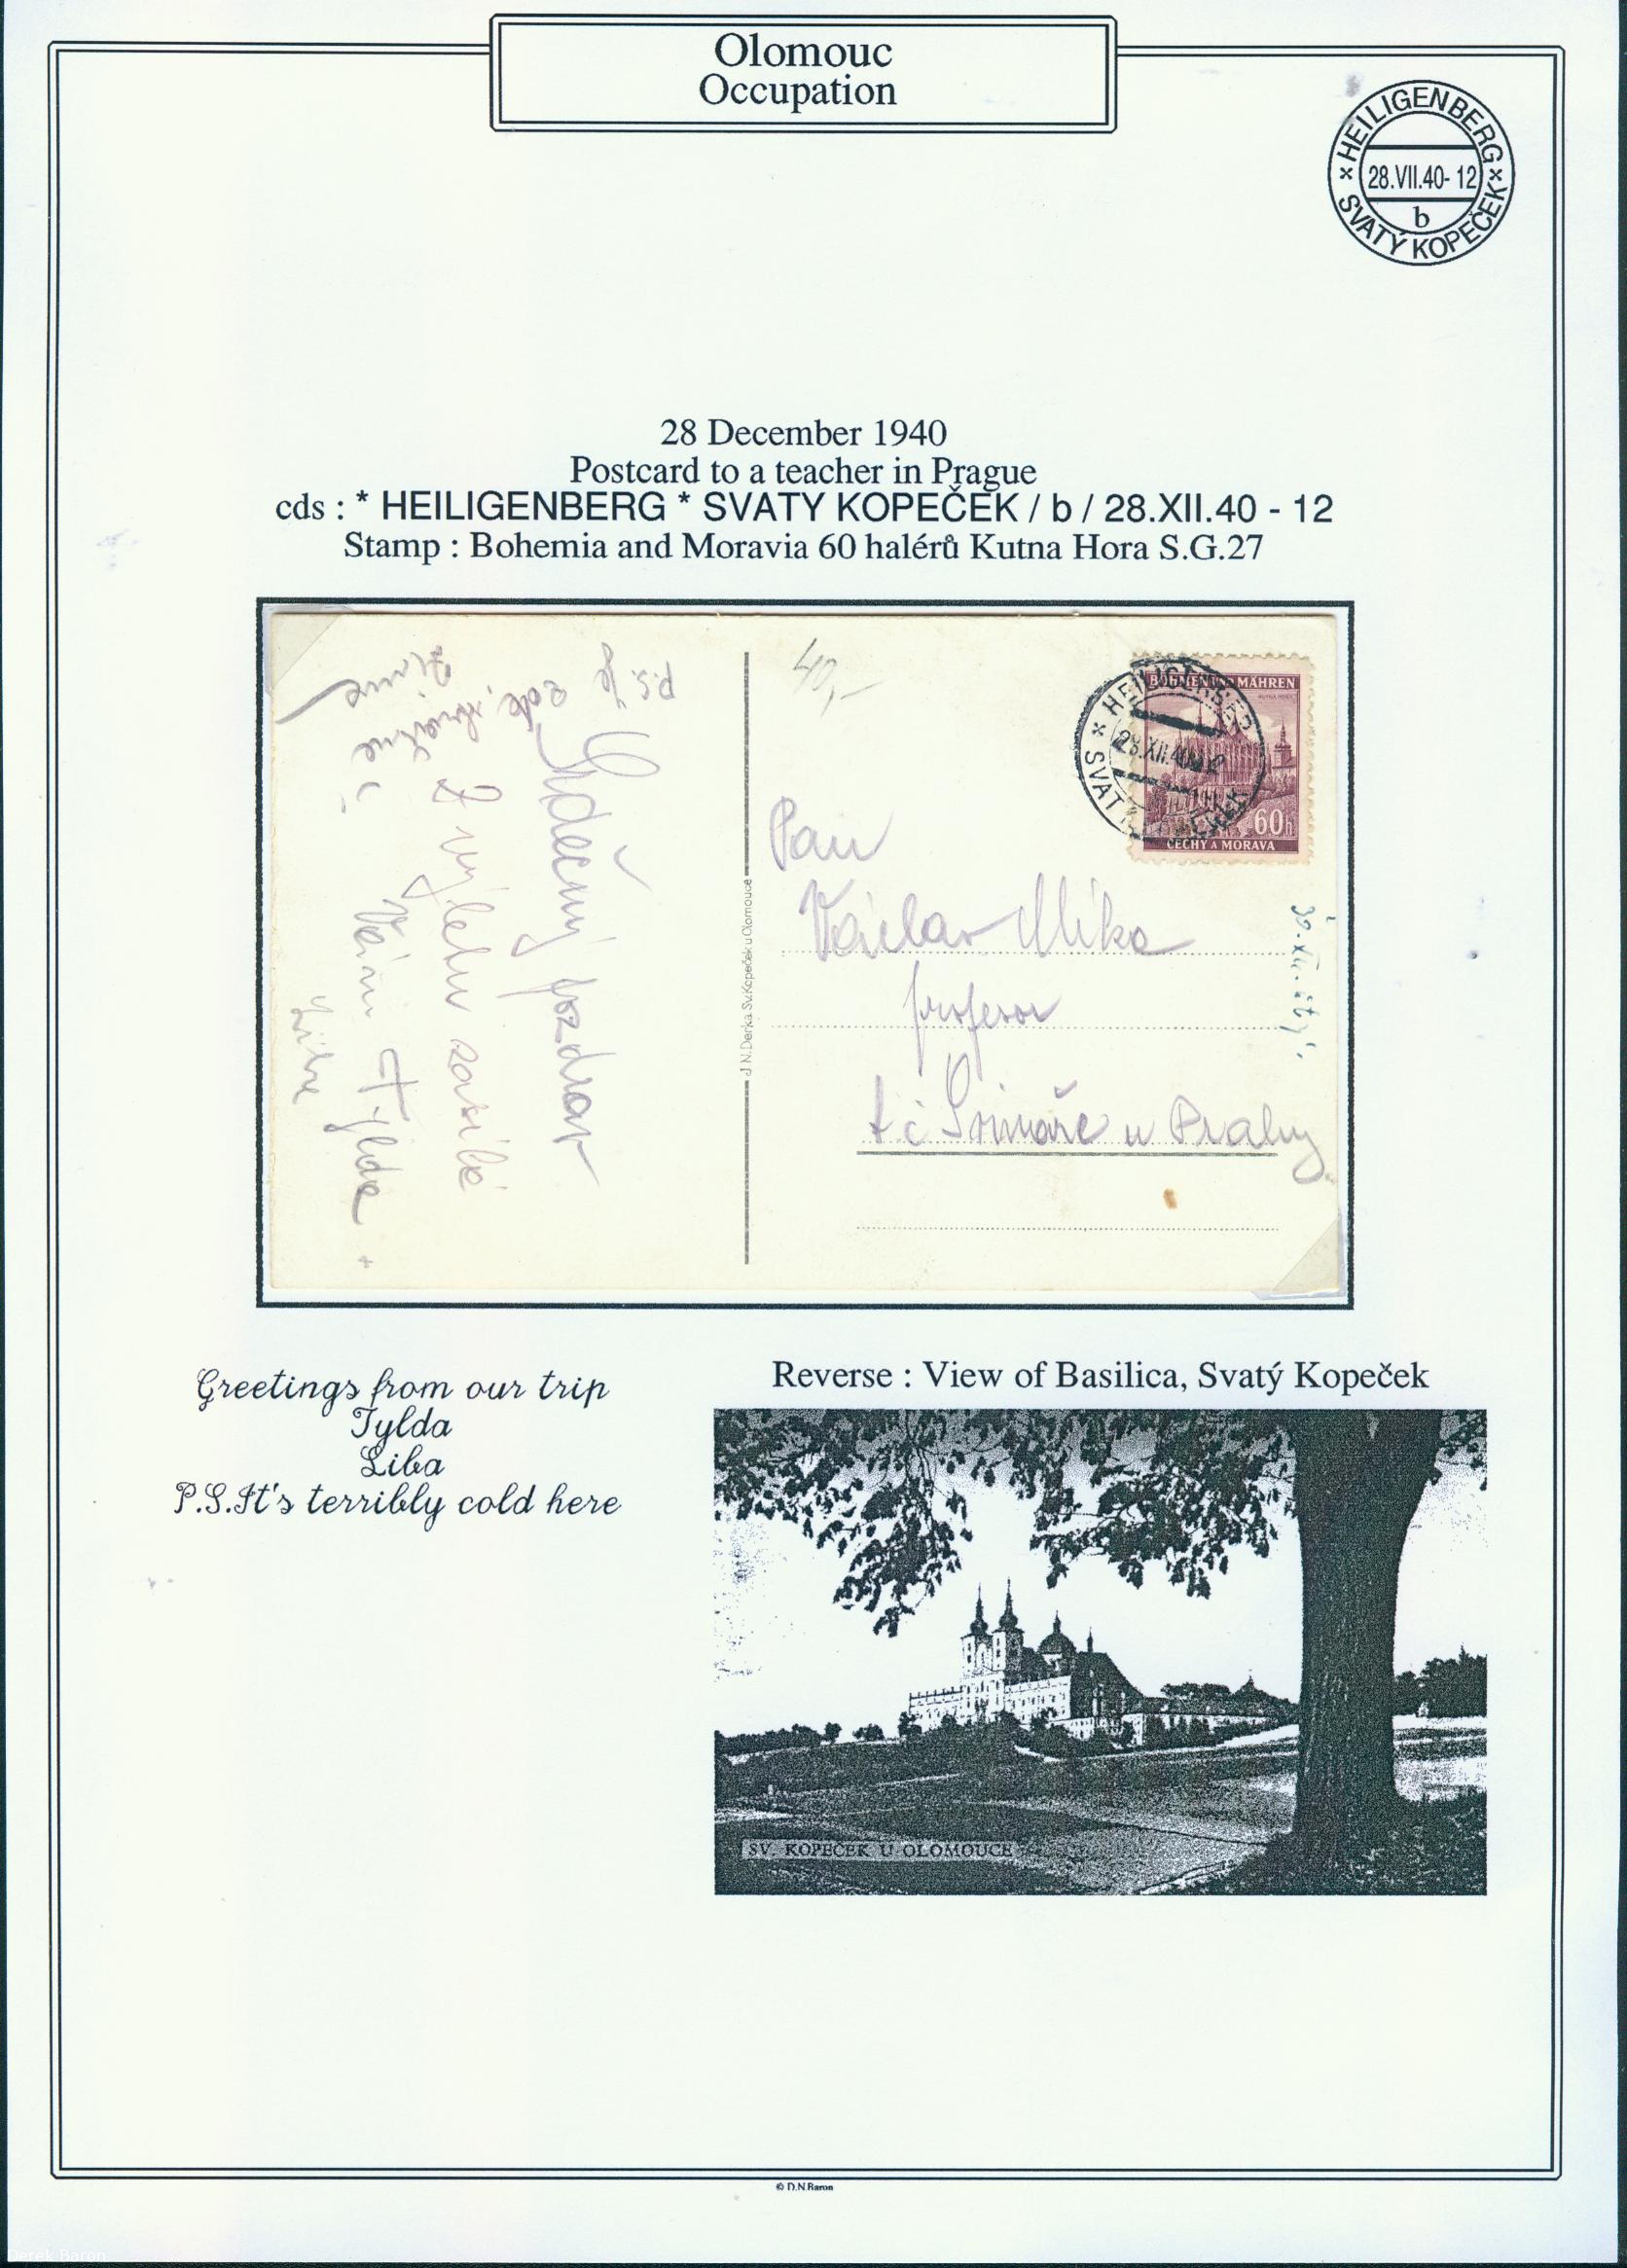 Olomouc
Occupation
HEILIGENBERG
28.VII.40- 12
b
SVATÝ KOPEČEK
28 December 1940
Postcard to a teacher in Prague
cds : * HEILIGENBERG * SVATY KOPEČEK / b / 28.XII.40 - 12
Stamp : Bohemia and Moravia 60 halérů Kutna Hora S.G.27
P.S. Je
zde
zima
Srdečný pozdrav
z výletu zasílá
Vám Tylda +
Liba
J.N.Derka Sv.Kopeček u Olomouce
40,-
BÖHMEN UND MÄHREN
60h
ČECHY A MORAVA
HEILIGENBERG
28.XII.40
SVATÝ
Pan
Václav Mika
profesor
t č u Prahy
Greetings from our trip
Tylda
Liba
P.S.It's terribly cold here
Reverse : View of Basilica, Svatý Kopeček
SV. KOPEČEK U OLOMOUCE
© D.N.Baron
Derek Baron